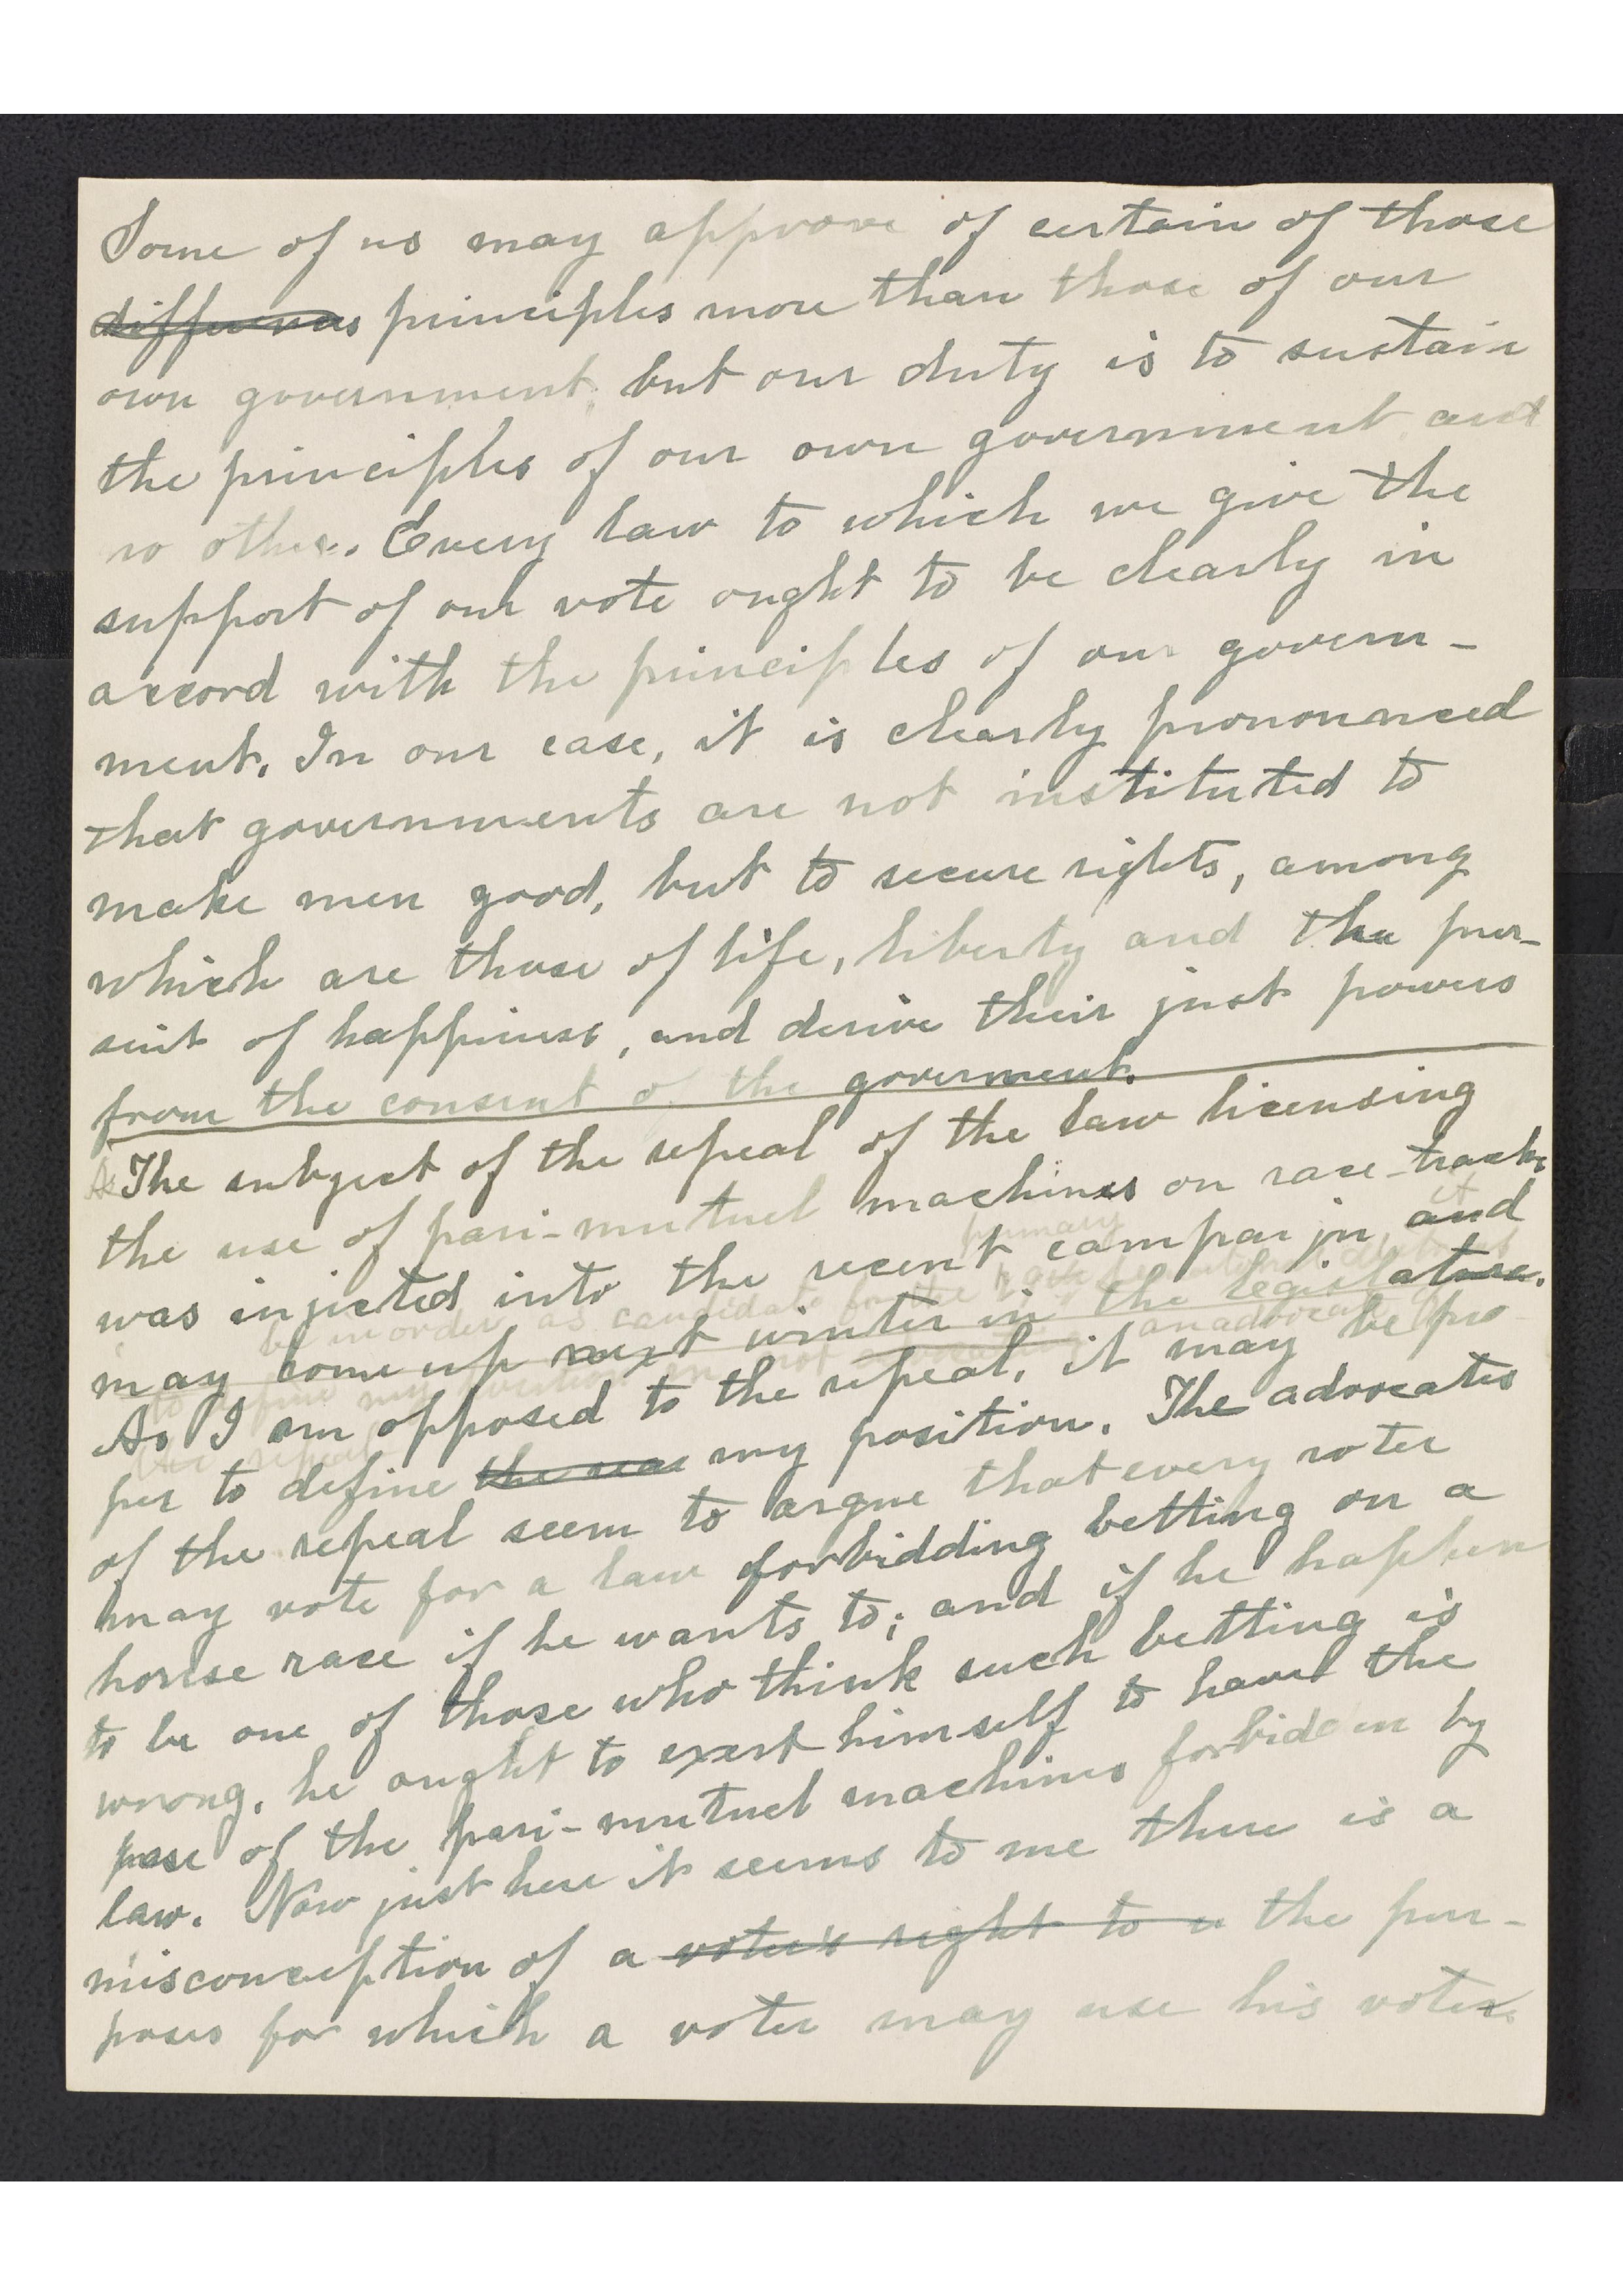 Some of us may approve of certain of those
differences principles more than those of our
own government, but our duty is to sustain
the principles of our own government and
no other. Every law to which we give the
support of our vote ought to be clearly in
accord with the principles of our govern-
ment. In our case, it is clearly pronounced
that governments are not instituted to
make men good, but to secure rights, among
which are those of life, liberty and the pur-
suit of happiness, and derive their just powers
from the consent of the goverment.
As The subject of the repeal of the law licensing
the use of pari-mutuel machines on race-tracks
primary it
was injected into the recent campaign, and
be in order as candidate for the
may come up next winter in the legislature.
to define my position not advocating an advocate of
As I am opposed to the repeal, it may be pro-
the repeal
per to define the reas my position. The advocates
of the repeal seem to argue that every voter
may vote for a law forbidding betting on a
horse race if he wants to; and if he happen
to be one of those who think such betting is
wrong, he ought to exert himself to have the
puse of the pari-mutuel machines forbidden by
law. Now just here it seems to me there is a
misconception of a voter's right to u the pur-
poses for which a voter may use his vote.